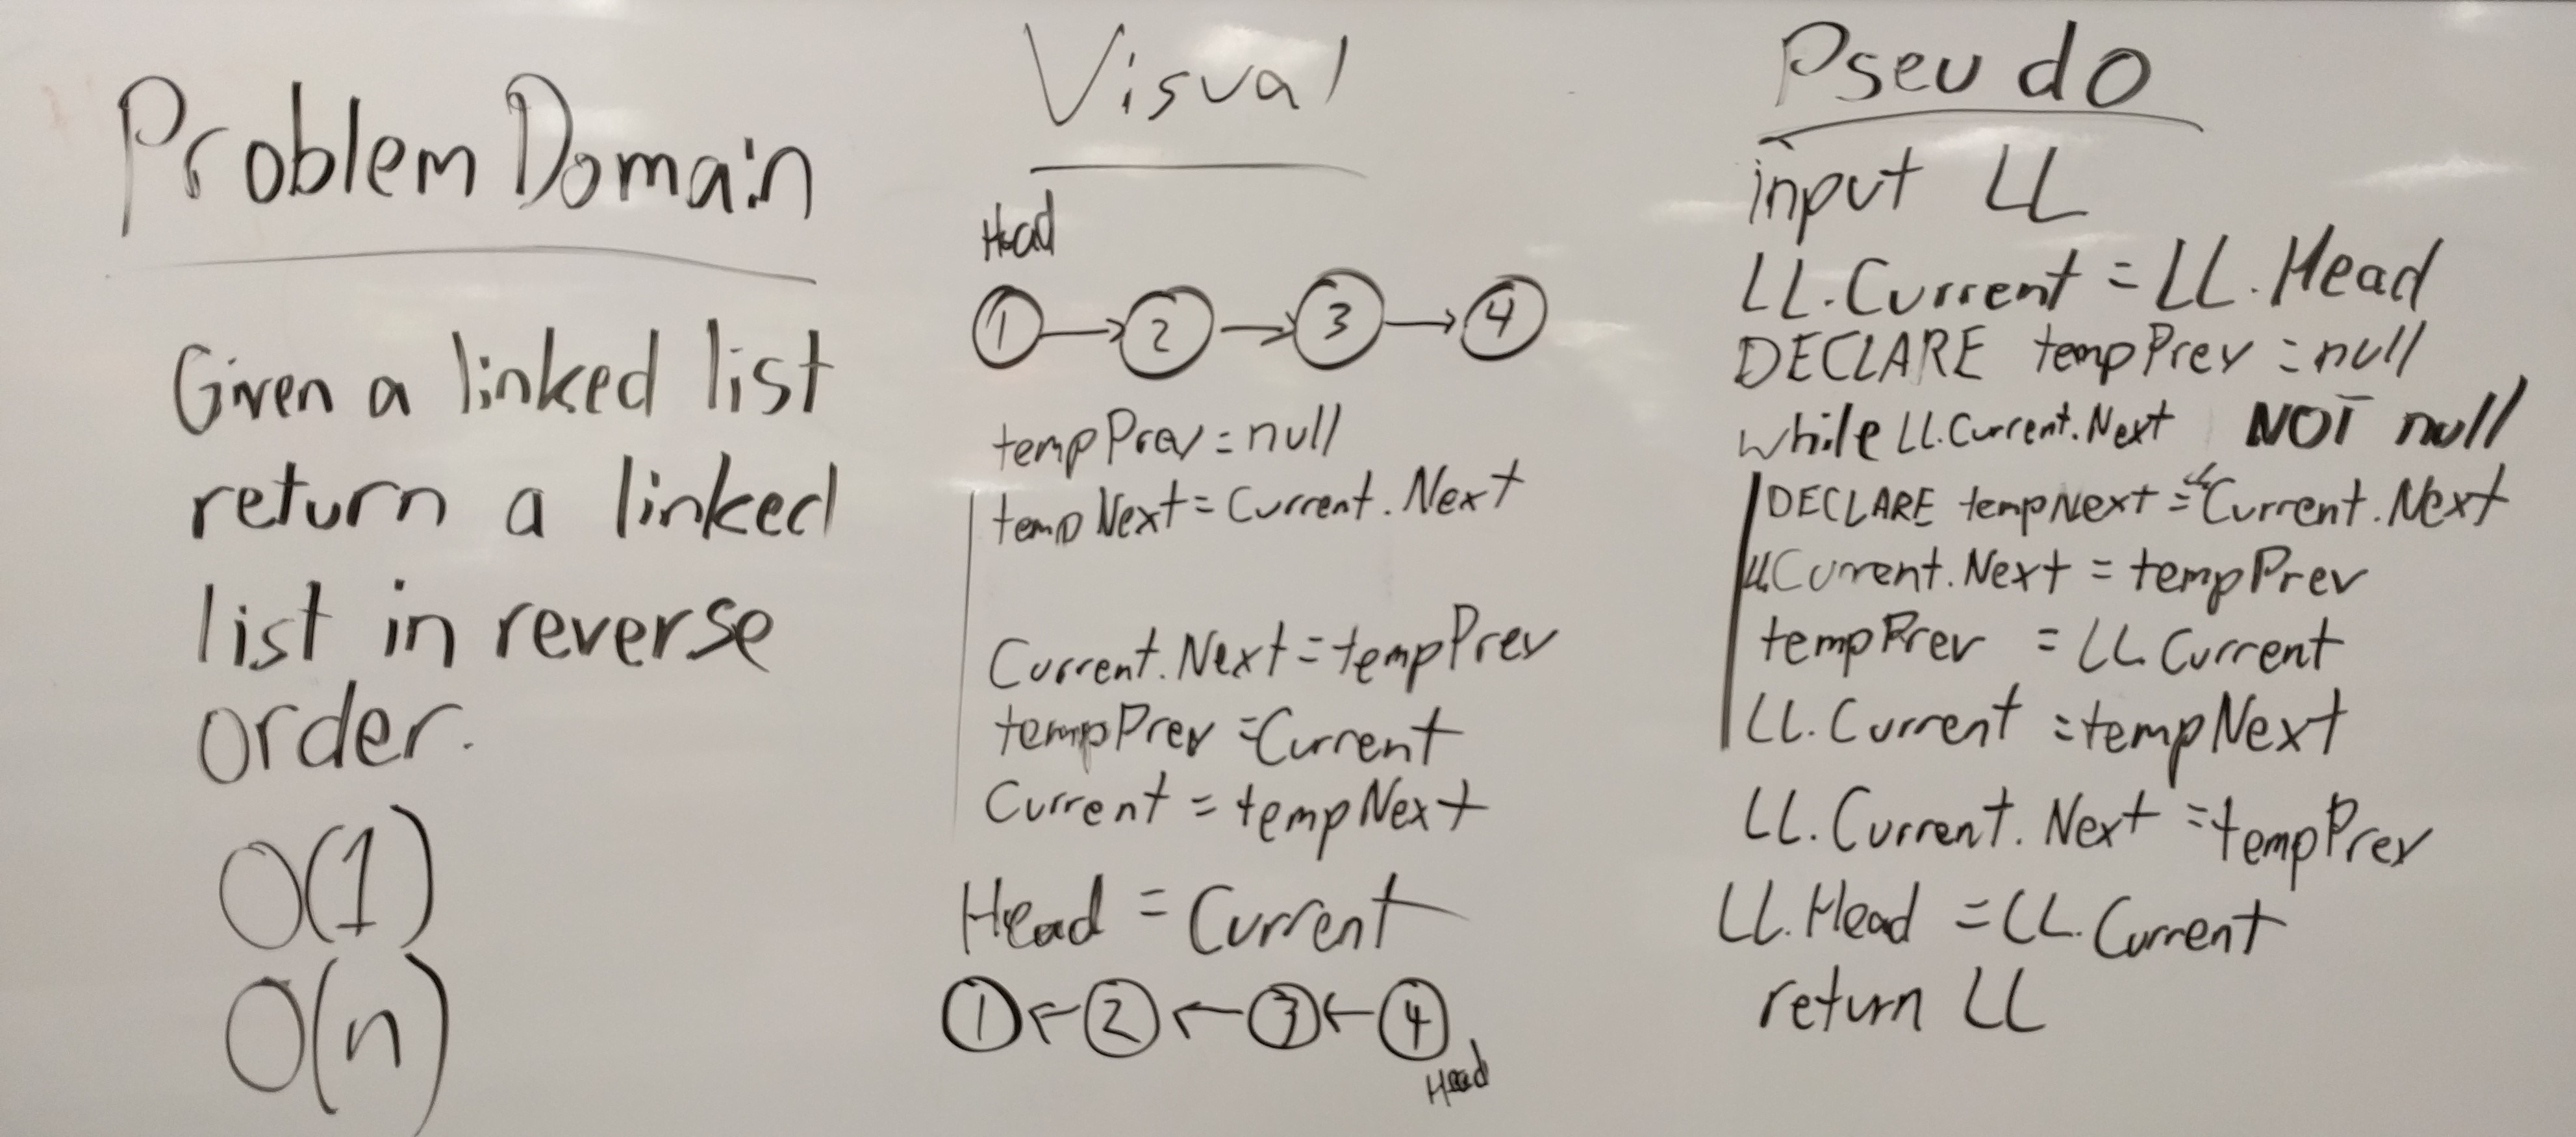 Problem Domain
Given a linked list
return a linked
list in reverse
order.
O(1)
O(n)
Visual
Head
1 → 2 → 3 → 4
tempPrev = null
tempNext = Current.Next
Current.Next = tempPrev
tempPrev = Current
Current = tempNext
Head = Current
1 ← 2 ← 3 ← 4
Head
Pseudo
input LL
LL.Current = LL.Head
DECLARE tempPrev = null
while LL.Current.Next NOT null
DECLARE tempNext = LL Current.Next
LL Current.Next = tempPrev
tempPrev = LL.Current
LL.Current = tempNext
LL.Current.Next = tempPrev
LL.Head = LL.Current
return LL